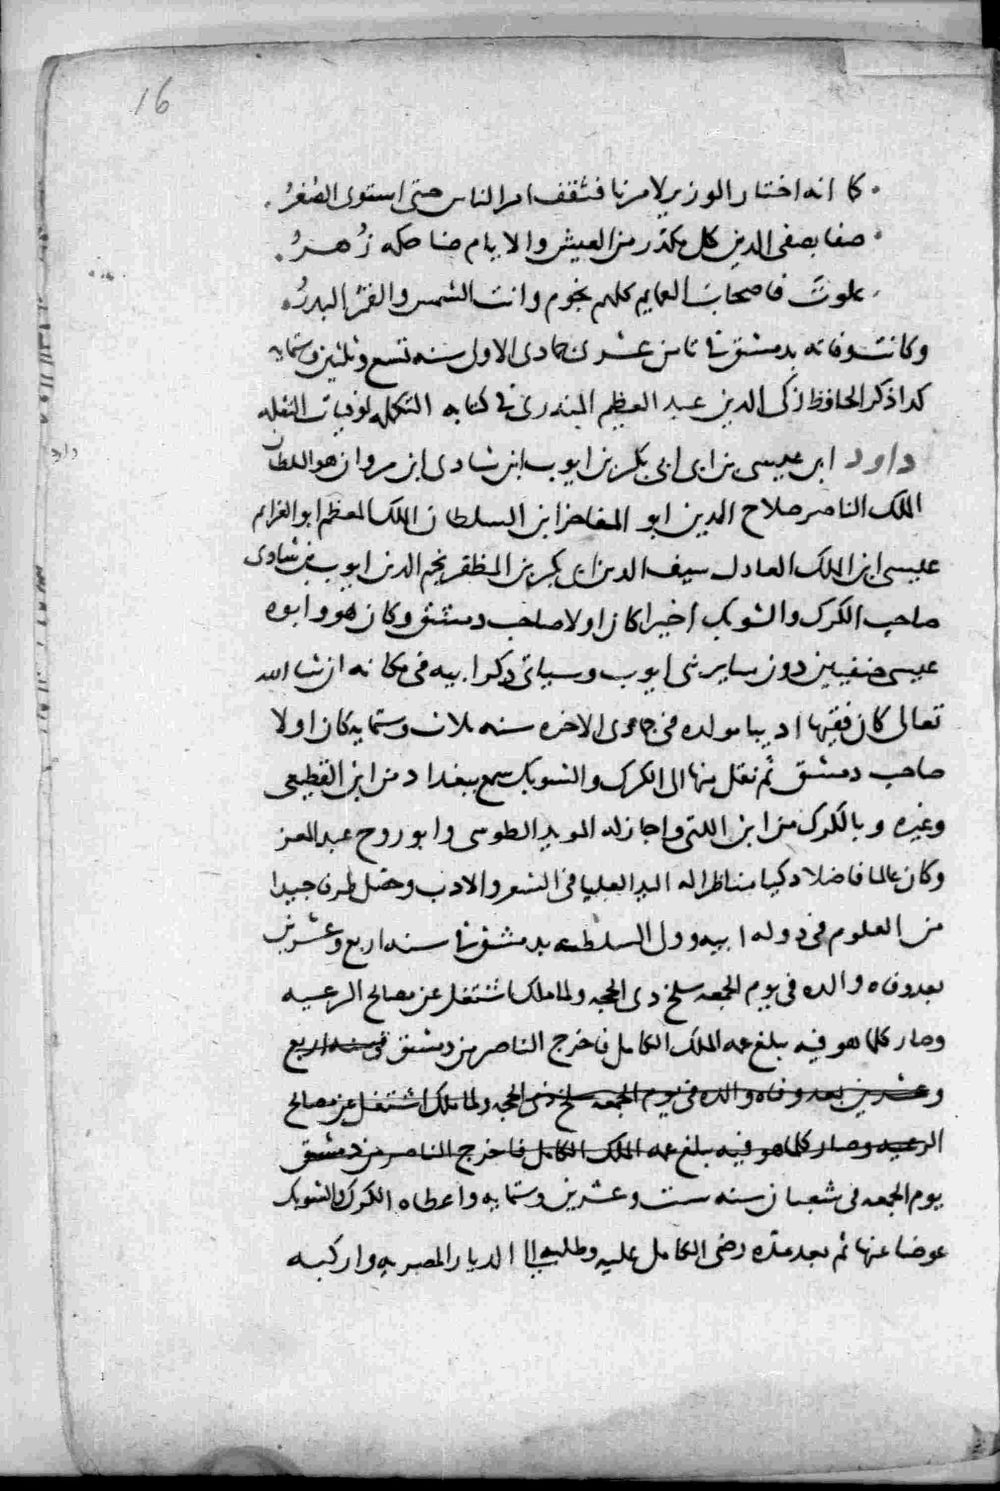 16
كما انه اختار الوزير لامرنا فثقف امر الناس حتى استوى الصُغرُ
صفا بصفى الدين كل مكدر من العيش والايام ضاحكه زُهـرُ
علوتَ فاصحابُ العمايم كلهم نجوم وانت الشمس والقمرُ البدرُ
وكانت وفاته بدمشق في ثامن عشر جمادى الاول سنه تسع وثلثين وستمايه
كدا ذكر الحافظ زكى الدين عبد العظيم المنذرى في كتابه التكمله لوفيات النقله
داود ابن عيسى بن ابى ابى بكر بن ايوب ابن شادى ابن مروان هو السلطان
داود
الملك الناصر صلاح الدين ابو المفاخر ابن السلطان الملك المعظم ابو العزائم
عيسى ابن الملك العادل سيف الدين ابى بكر بن المظفر نجم الدين ايوب بن شادى
صاحب الكرك والشوبك اخيرا كان اولا صاحب دمشق وكان هو وابوه
عيسى حنفيين دون ساير بنى ايوب وسياتى ذكر ابيه فى مكانه ان شا الله
تعالى كان فقيها اديبا مولده فى جمادى الاخره سنه ثلاث وستمايه كان اولا
صاحب دمشق ثم نقل منها الى الكرك والشوبك سمع ببغداد من ابن القطيعى
وغيره وبالكرك من ابن اللتى واجاز له المويد الطوسى وابو روح عبد المعز
وكان عالما فاضلا دكيا مناظرا له اليد العليا فى الشعر والادب وحصل طرفا جيدا
من العلوم فى دوله ابيه وولى السلطنه بدمشق في سنه اربع وعشرين
بعد وفاه والده فى يوم الجمعه سلخ دى الحجه ولما ملك اشتغل عن مصالح الرعيه
وصار كلما هو فيه يبلغ عمه الملك الكامل فاخرج الناصر من دمشق فى سنه اربع
وعشرين بعد وفاه والده فى يوم الجمعه سلخ ذى الحجه ولما ملك اشتغل عن مصالح
الرعيه وصار كلما هو فيه يبلغ عمه الملك الكامل فاخرج الناصر من دمشق
يوم الجمعه فى شعبان سنه ست وعشرين وستمايه واعطاه الكرك والشوبك
عوضا عنها ثم بعد مده رضى الكامل عليه وطلبه الى الديار المصريه واركبه